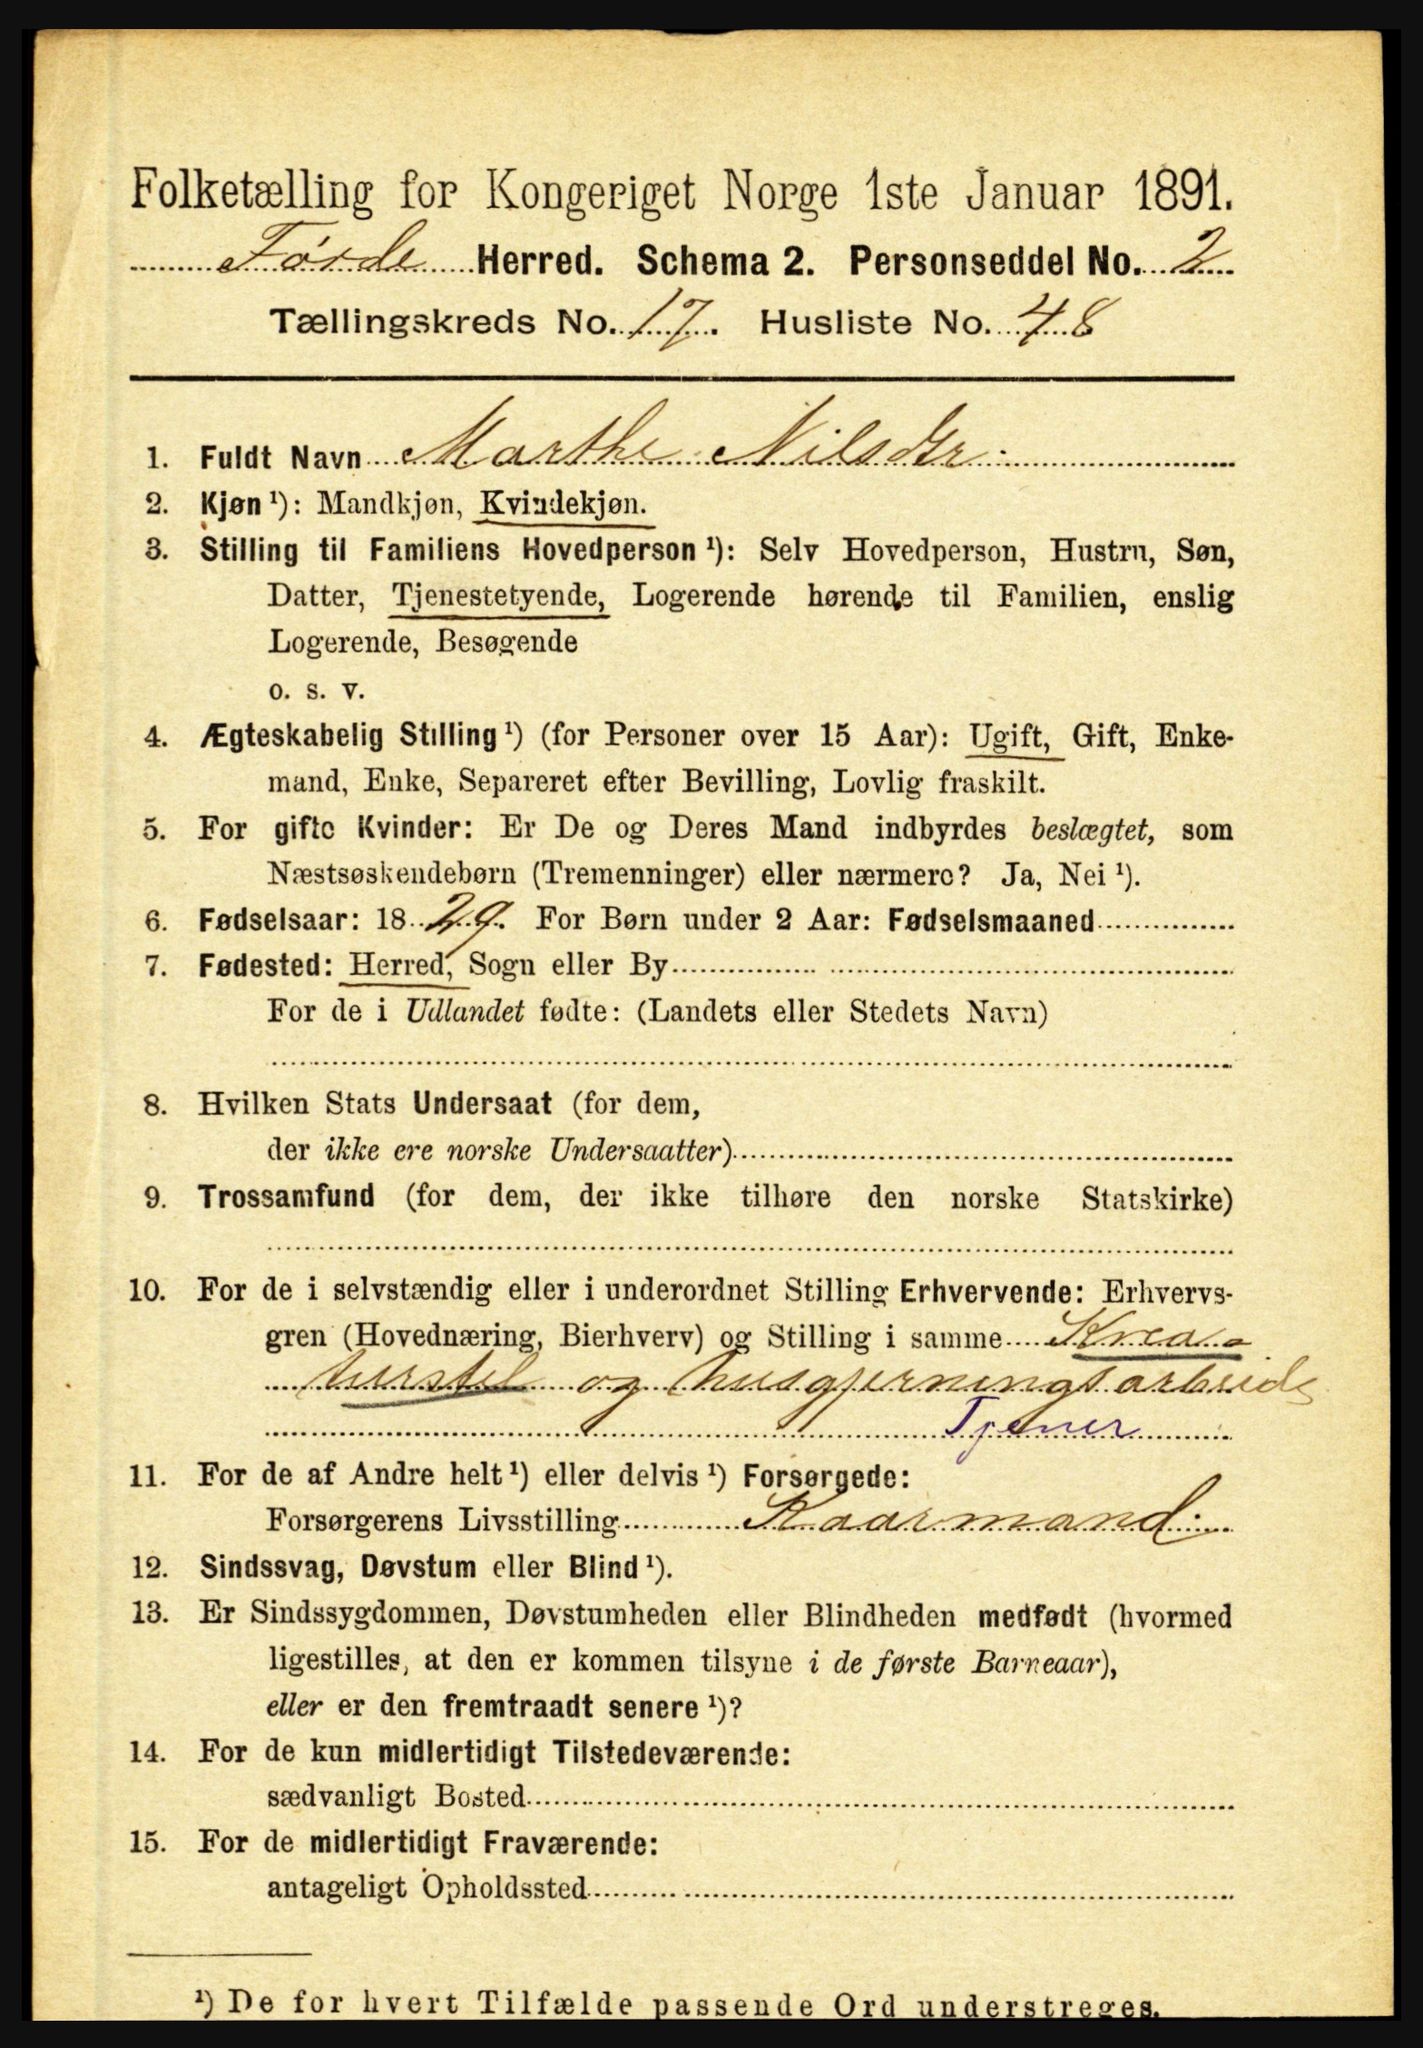 Folketælling for Kongeriget Norge 1ste Januar 1891.
Førde Herred. Schema 2. Personseddel No. 2
Tællingskreds No. 17. Husliste No. 48
1. Fuldt Navn Marthe Nilsdtr.
2. Kjøn ¹): Mandkjøn, Kvindekjøn.
3. Stilling til Familiens Hovedperson ¹): Selv Hovedperson, Hustru, Søn,
Datter, Tjenestetyende, Logerende hørende til Familien, enslig
Logerende, Besøgende
o. s. v.
4. Ægteskabelig Stilling ¹) (for Personer over 15 Aar): Ugift, Gift, Enke-
mand, Enke, Separeret efter Bevilling, Lovlig fraskilt.
5. For gifte Kvinder: Er De og Deres Mand indbyrdes beslægtet, som
Næstsøskendebørn (Tremenninger) eller nærmere? Ja, Nei ¹).
6. Fødselsaar: 1829. For Børn under 2 Aar: Fødselsmaaned
7. Fødested: Herred, Sogn eller By
For de i Udlandet fødte: (Landets eller Stedets Navn)
8. Hvilken Stats Undersaat (for dem,
der ikke ere norske Undersaatter)
9. Trossamfund (for dem, der ikke tilhøre den norske Statskirke)
10. For de i selvstændig eller i underordnet Stilling Erhvervende: Erhvervs-
gren (Hovednæring, Bierhverv) og Stilling i samme Krea-
turstel og husgjerningsarbeide
Tjener
11. For de af Andre helt ¹) eller delvis ¹) Forsørgede:
Forsørgerens Livsstilling Kaarmand.
12. Sindssvag, Døvstum eller Blind ¹).
13. Er Sindssygdommen, Døvstumheden eller Blindheden medfødt (hvormed
ligestilles, at den er kommen tilsyne i de første Barneaar),
eller er den fremtraadt senere ¹)?
14. For de kun midlertidigt Tilstedeværende:
sædvanligt Bosted
15. For de midlertidigt Fraværende:
antageligt Opholdssted
¹) De for hvert Tilfælde passende Ord understreges.